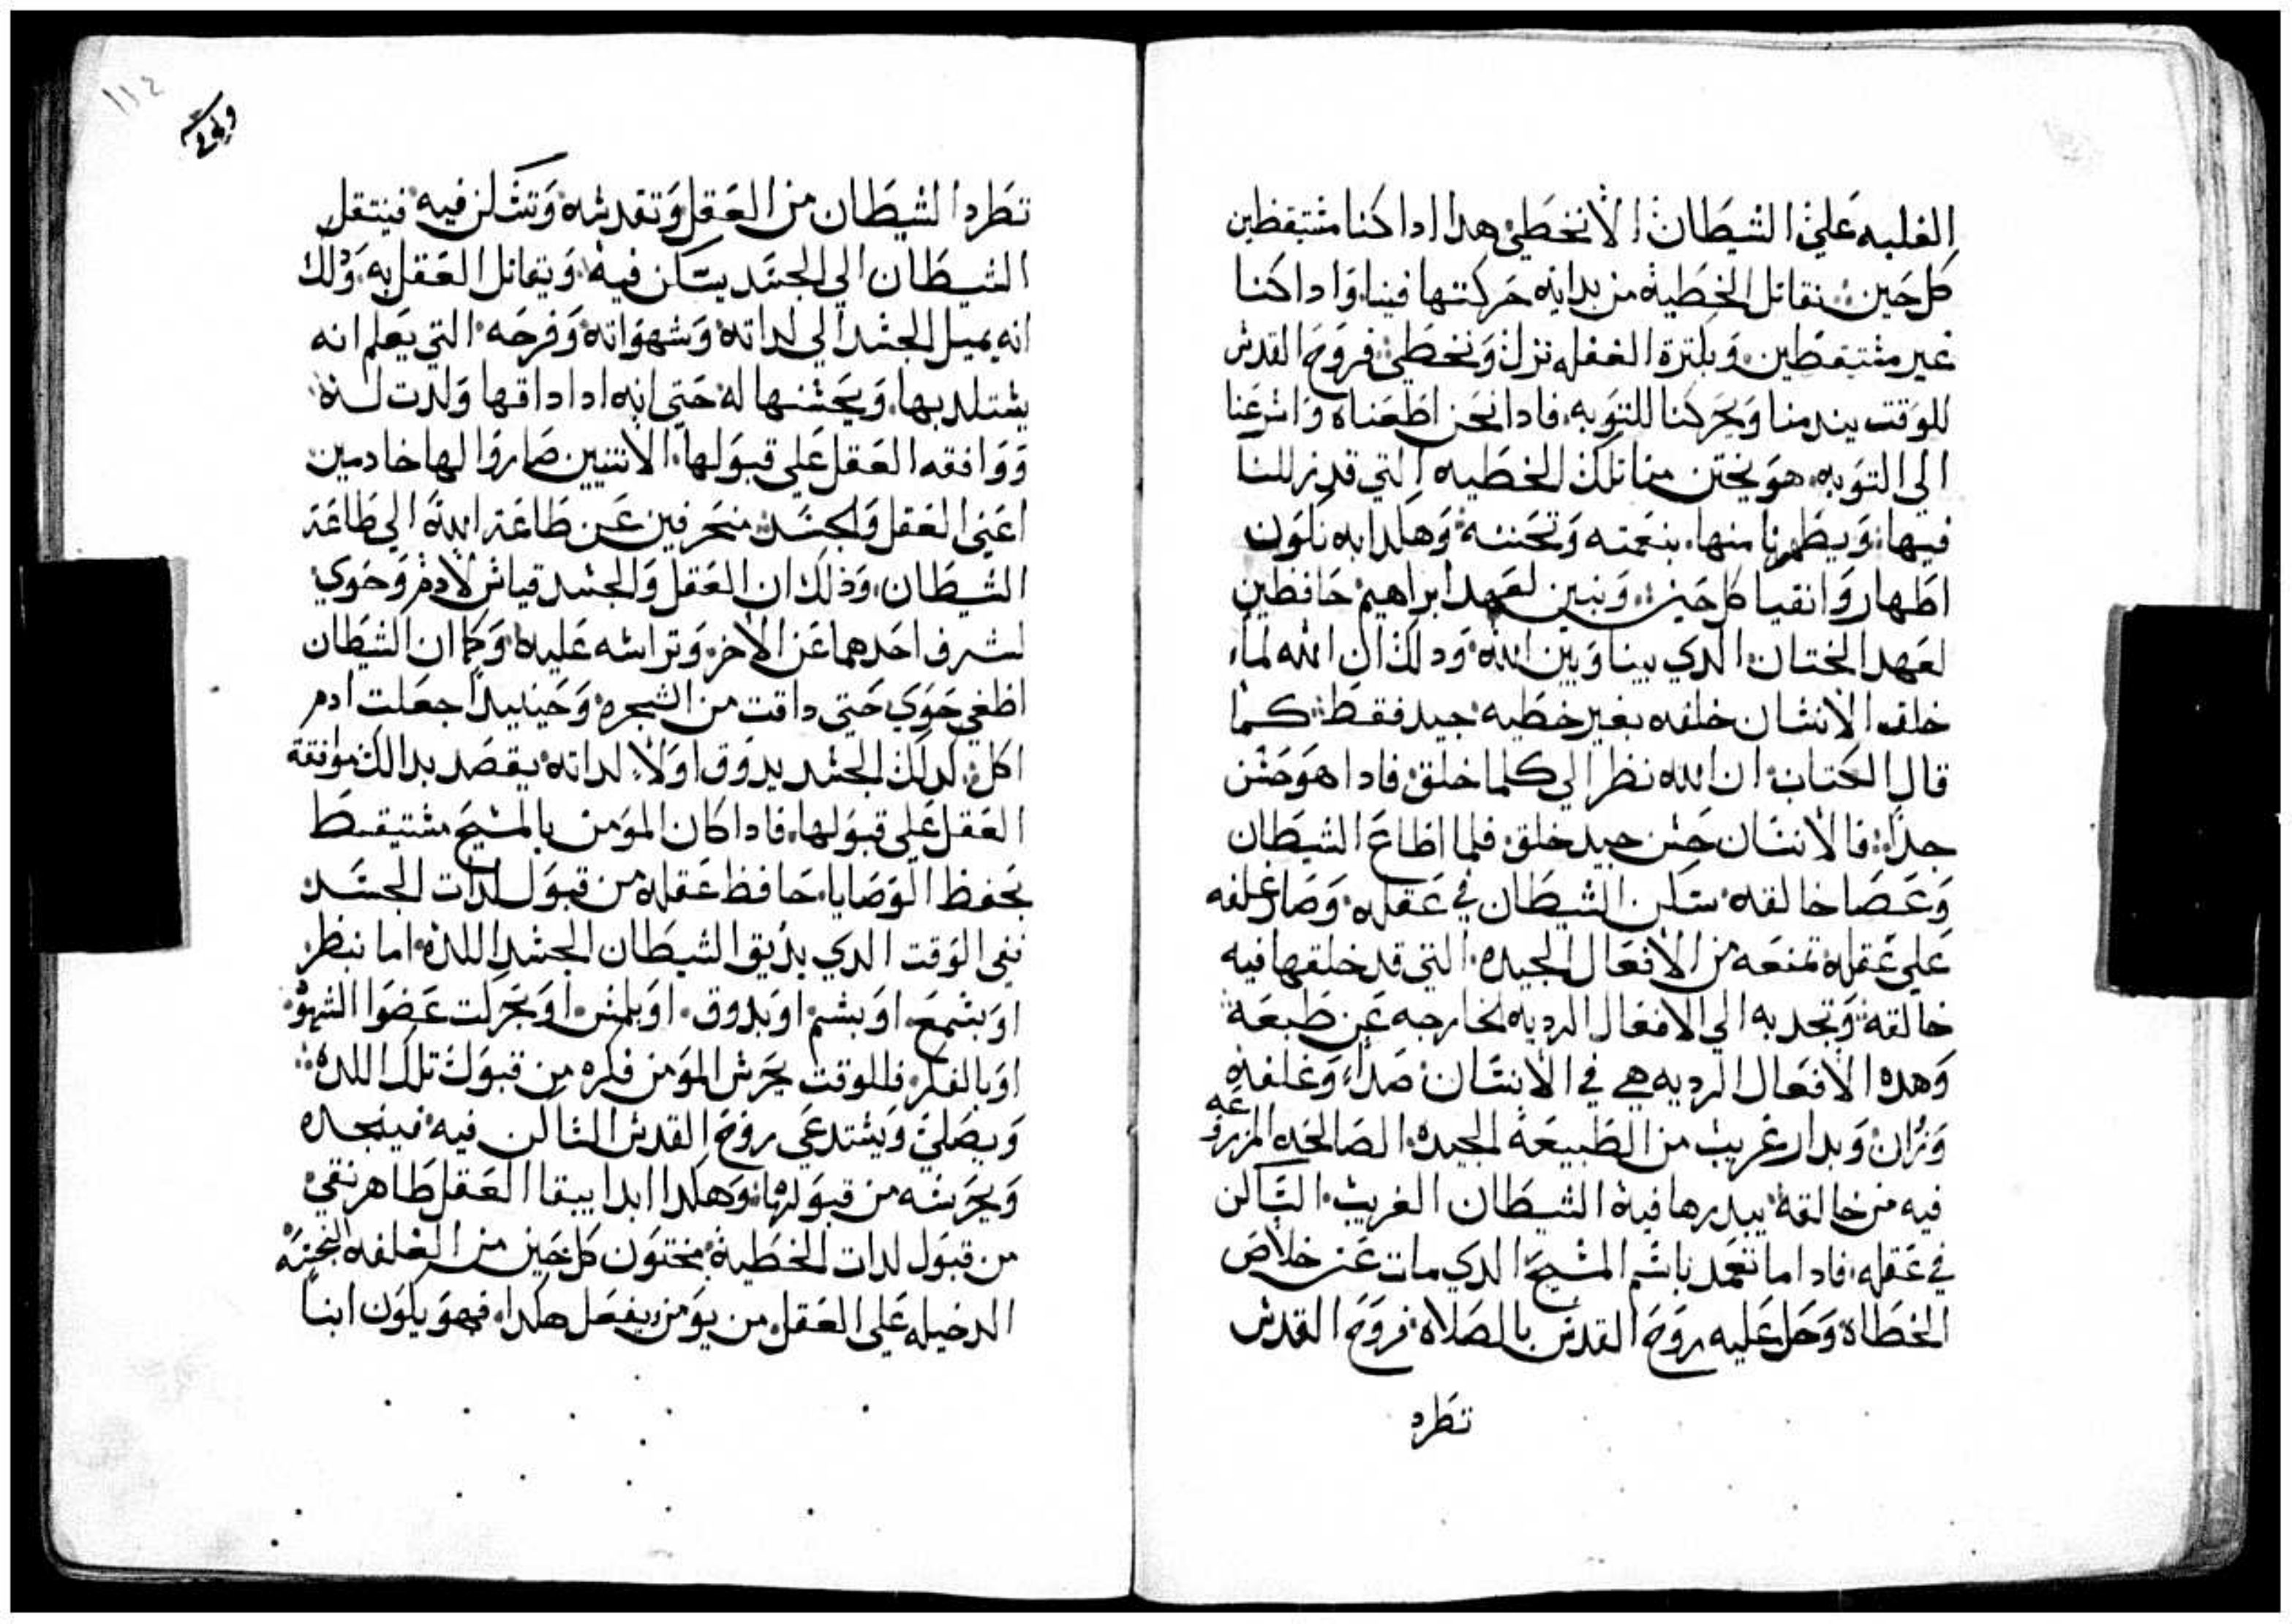 الغلبه علي الشيطان الانخطي هدا اداكنا مشتيقظين
كل حين نقاتل الخطية من بداية حركتها فينا وادا كنا
غير مشتيقظين وبكترة الغفله نزل ونخطي فروح القدش
للوقت يندمنا ويحركنا للتوبه فادا نحن اطعناه واشرعنا
الي التوبه هو يختن منا تلك الخطيه التي قد زللنا
فيها ويطهرنا منها بنعمته وتحننه وهكدا به نكون
اطهار وانقيا كل حين وبنين لعهد ابراهيم حافظين
لعهد الختان الدي بيننا وبين الله ودلك ان الله لما
خلق الانشان خلقه بغير خطيه جيد فقط كما
قال الكتاب ان الله نظر الي كلما خلق فادا هو حشن
جدا فالانشان حشن جيد خلق فلما اطاع الشيطان
وعصا خالقه شكن الشيطان في عقله وصار غلفه
علي عقله تمنعه من الافعال الجيده التي قد خلقها فيه
خالقه وتجدبه الي الافعال الرديه الخارجه عن طبعه
وهده الافعال الرديه هي في الانشان صدا وغلفه
وزوان وبدار غريب من الطبيعة الجيده الصالحه المزروعه
فيه من خالقه يبدرها فيه الشيطان الغريب الشاكن
في عقله فادا ما تعمد باشم المشيح الدي مات عن خلاص
الخطاه وحل عليه روح القدش بالصلاه فروح القدش
تطرد
١١٢
تطرد الشيطان من العقل وتقدشه وتشكن فيه فينتقل
الشيطان الي الجشد يشكن فيه ويقاتل العقل به ودلك
انه يميل الجشد الي لداته وشهواته وفرحه التي يعلم انه
يشتلد بها ويحشنها له حتي انه ادا داقها ولدت له
ووافقه العقل علي قبولها الاتنين صاروا لها خادمين
اعني العقل والجشد منحرفين عن طاعة الله الي طاعة
الشيطان ودلك ان العقل والجشد قياش لادم وحوي
لشرف احدهما عن الاخر وتراشه عليه وكما ان الشيطان
اطغي حوي حتي داقت من الشجره وحينيدا جعلت ادم
اكل كدلك الجشد يدوق اولا لداته يقصد بدالك موافقة
العقل علي قبولها فادا كان المومن بالمشيح مشتيقظ
بحفظ الوصايا حافظ عقله من قبول لدات الجشد
ففي الوقت الدي يديق الشيطان الجشد اللده اما بنظر
او بشمع او بشم او بدوق او بلمش او بحركت عضوا الشهوه
او بالفكر فللوقت يحرش المومن فكره من قبول تلك اللده
ويصلي ويشتدعي روح القدش الشاكن فيه فينجده
ويحرشه من قبولها وهكدا ابدا يبقا العقل طاهر نقي
من قبول لدات الخطية مختون كل حين من الغلفه النجشه
الدخيله علي العقل من يومن يفعل هكدا فهو يكون ابنا